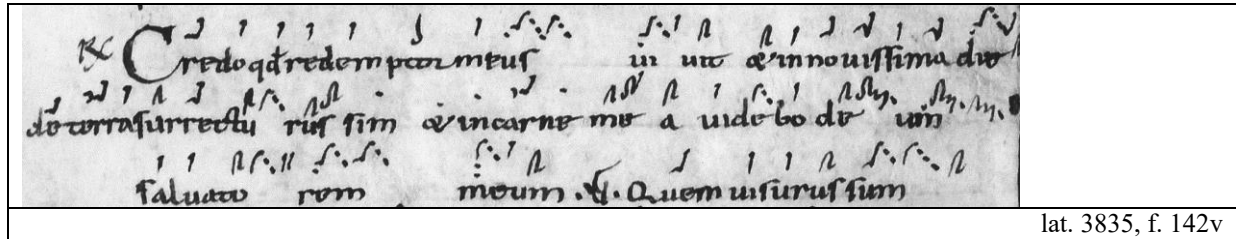 ℟C Credo qđ redemptor meus in uit & in nouissima die
de terra surrectu rus sim & in carne me a uidebo de um
saluato rem meum. ℣. Quem uisurus sum
lat. 3835, f. 142v